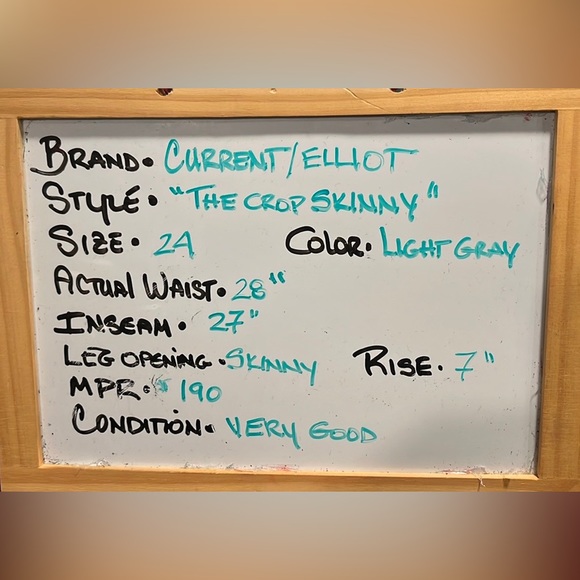 BRAND • CURRENT/ELLIOT
STYLE • "THE CROP SKINNY"
SIZE • 24 COLOR • LIGHT GRAY
ACTUAL WAIST • 28"
INSEAM • 27"
LEG OPENING • SKINNY RISE • 7"
MPR • $190
CONDITION • VERY GOOD